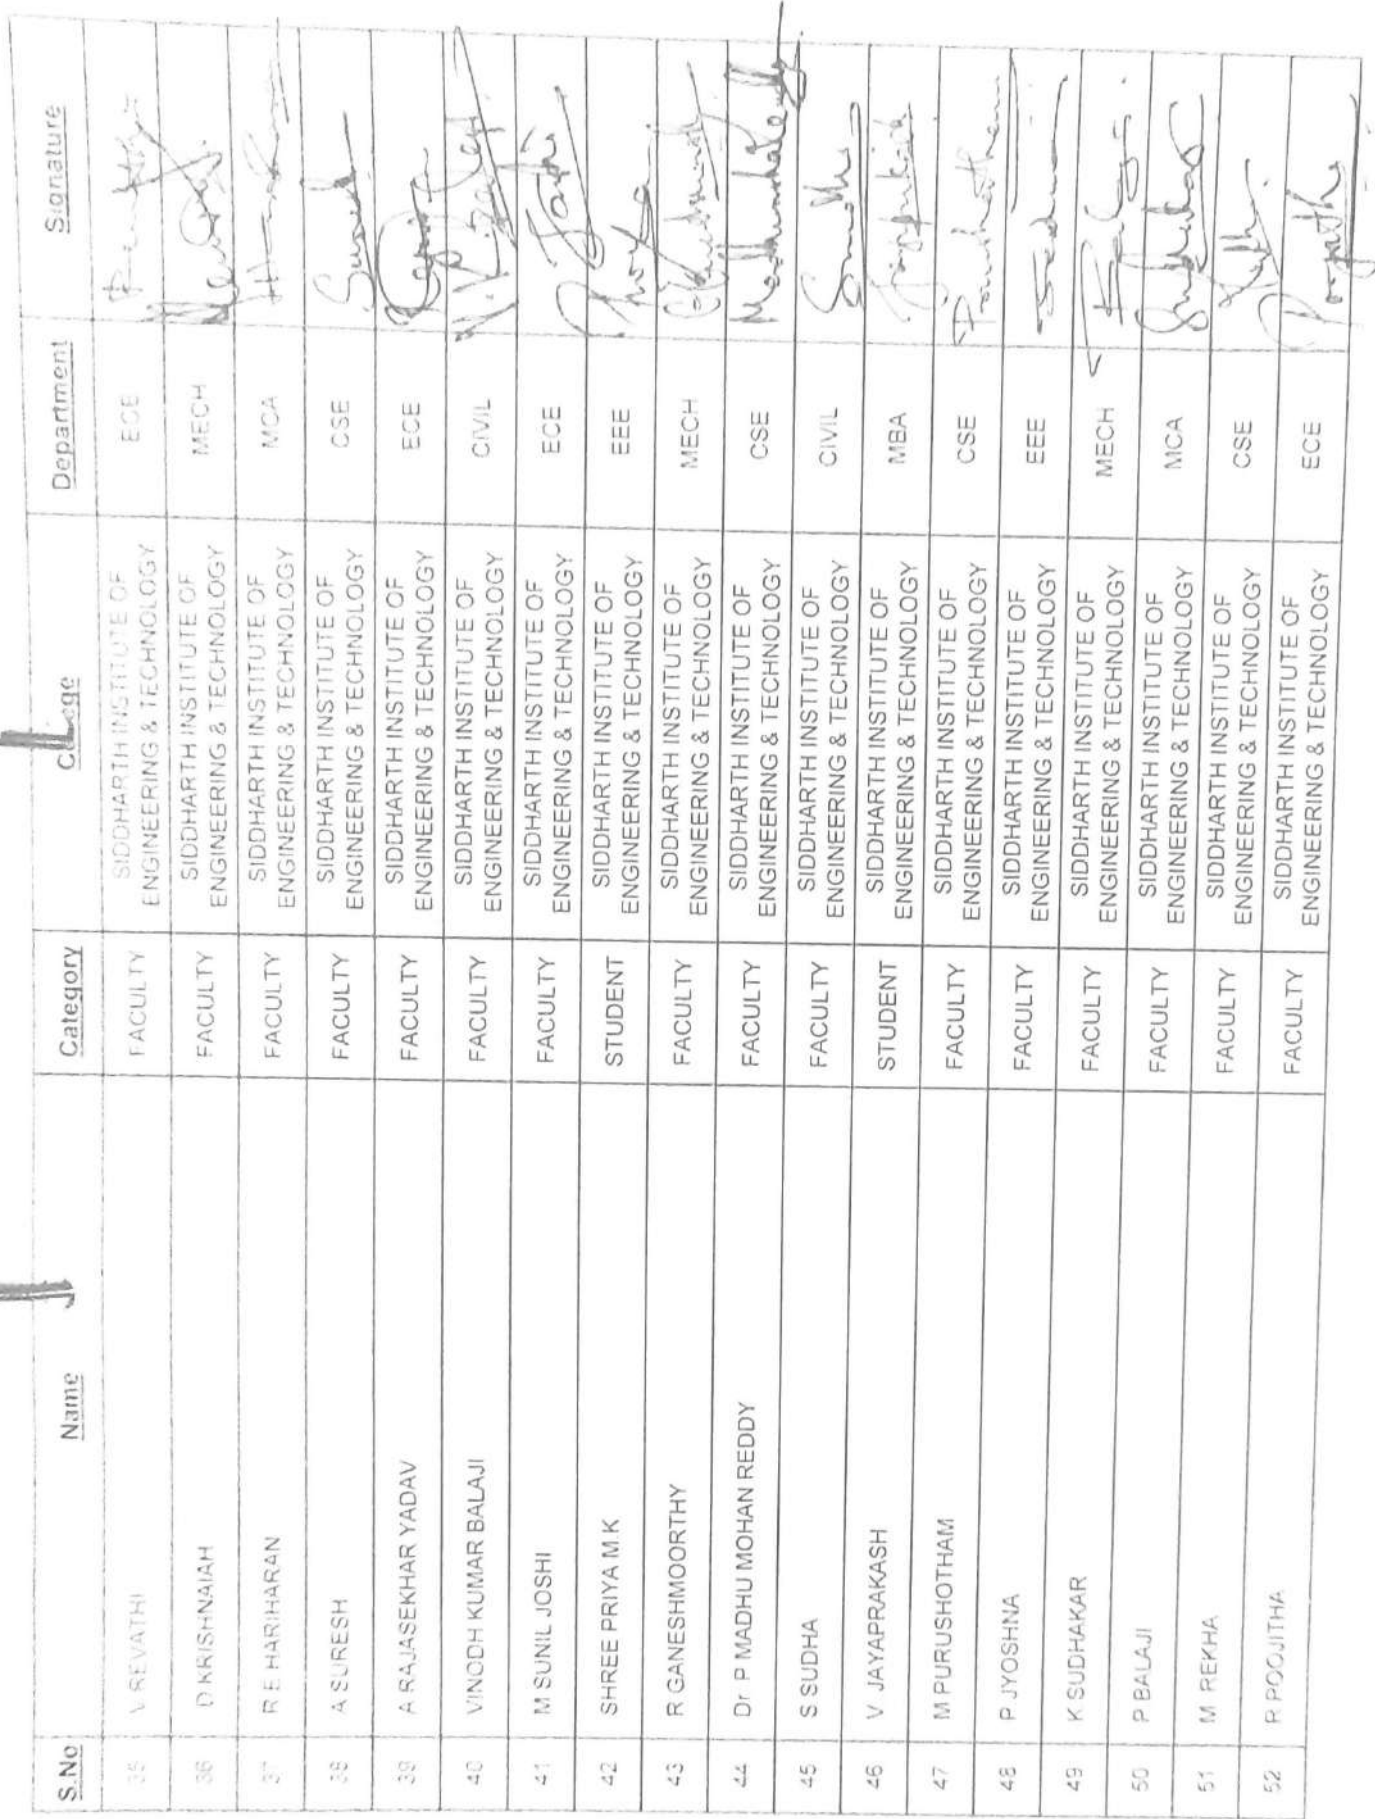 S.No Name College Category Department Signature
35 V REVATHI FACULTY SIDDHARTH INSTITUTE OF ECE
ENGINEERING & TECHNOLOGY
36 D KRISHNAIAH FACULTY SIDDHARTH INSTITUTE OF MECH
ENGINEERING & TECHNOLOGY
37 R E HARIHARAN FACULTY SIDDHARTH INSTITUTE OF MCA
ENGINEERING & TECHNOLOGY
38 A SURESH FACULTY SIDDHARTH INSTITUTE OF CSE Suresh
ENGINEERING & TECHNOLOGY
39 A RAJASEKHAR YADAV FACULTY SIDDHARTH INSTITUTE OF ECE
ENGINEERING & TECHNOLOGY
40 VINODH KUMAR BALAJI FACULTY SIDDHARTH INSTITUTE OF CIVIL
ENGINEERING & TECHNOLOGY
41 M SUNIL JOSHI FACULTY SIDDHARTH INSTITUTE OF ECE
ENGINEERING & TECHNOLOGY
42 SHREE PRIYA M.K STUDENT SIDDHARTH INSTITUTE OF EEE
ENGINEERING & TECHNOLOGY
43 R GANESHMOORTHY FACULTY SIDDHARTH INSTITUTE OF MECH
ENGINEERING & TECHNOLOGY
44 Dr P MADHU MOHAN REDDY FACULTY SIDDHARTH INSTITUTE OF CSE
ENGINEERING & TECHNOLOGY
45 S SUDHA FACULTY SIDDHARTH INSTITUTE OF CIVIL
ENGINEERING & TECHNOLOGY
46 V JAYAPRAKASH STUDENT SIDDHARTH INSTITUTE OF MBA
ENGINEERING & TECHNOLOGY
47 M PURUSHOTHAM FACULTY SIDDHARTH INSTITUTE OF CSE
ENGINEERING & TECHNOLOGY
48 P JYOSHNA FACULTY SIDDHARTH INSTITUTE OF EEE
ENGINEERING & TECHNOLOGY
49 K SUDHAKAR FACULTY SIDDHARTH INSTITUTE OF MECH
ENGINEERING & TECHNOLOGY
50 P BALAJI FACULTY SIDDHARTH INSTITUTE OF MCA
ENGINEERING & TECHNOLOGY
51 M REKHA FACULTY SIDDHARTH INSTITUTE OF CSE
ENGINEERING & TECHNOLOGY
52 R POOJITHA FACULTY SIDDHARTH INSTITUTE OF ECE
ENGINEERING & TECHNOLOGY